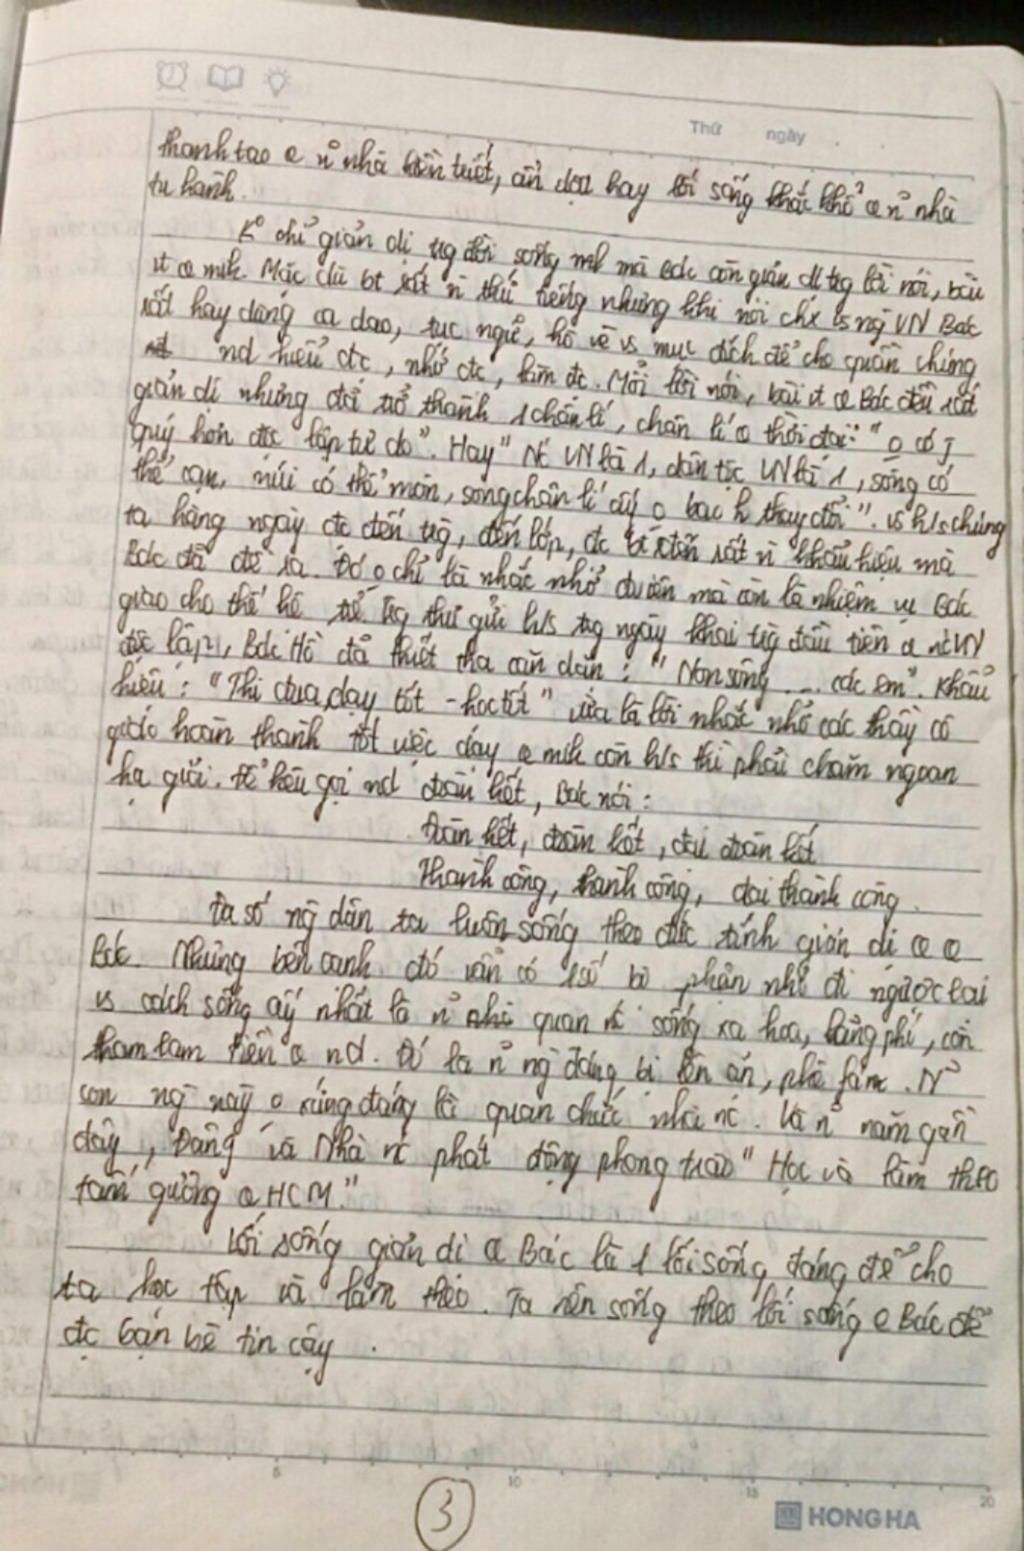 Thứ ngày
thanh tao e n° nhà hiền triết, ẩn dật hay lối sống khắc khổ e n° nhà
tu hành.
K° chỉ giản dị trg đời sống mk mà Bác còn giản dị trg lời nói, bài
vt e mik. Mặc dù bt rất n thứ tiếng nhưng khi nói chx vs ng VN Bác
rất hay dùng ca dao, tục ngữ, hò vè vs mục đích để cho quần chúng
nd hiểu đc, nhớ đc, làm đc. Mỗi lời nói, bài vt e Bác đều rất
giản dị nhưng đã trở thành 1 chân lí, chân lí e thời đại: "o có j
quý hơn độc lập tự do". Hay "Nc VN là 1, dân tộc VN là 1, sông có
thể cạn, núi có thể mòn, song chân lí ấy o bao h thay đổi". vs h/s chúng
ta hàng ngày đc đến trg, đến lớp, đc rất n khẩu hiệu mà
Bác đã đề ra. Đó o chỉ là nhắc nhở mà còn là nhiệm vụ Bác
giao cho thế hệ trẻ. Trg thư gửi h/s trg ngày khai trg đầu tiên e nc VN
độc lập, Bác Hồ đã thiết tha căn dặn: "Non sông .... các em". Khẩu
hiệu: "Thi đua, dạy tốt - học tốt" vừa là lời nhắc nhở các thầy cô
giáo hoàn thành tốt việc dạy e mik còn h/s thì phải chăm ngoan
hạ giỏi. Để kêu gọi nd đoàn kết, Bác nói:
Đoàn kết, đoàn kết, đại đoàn kết
Thành công, thành công, đại thành công.
Đa số ng dân ta luôn sống theo đức tính giản dị e e
Bác. Nhưng bên cạnh đó vẫn có 1 số bộ phận nhỏ đi ngược lại
vs cách sống ấy nhất là n° quan sống xa hoa, lãng phí, còn
tham lam tiền e nd. Đó là n° ng đáng bị lên án, phê fán. N°
con ng này o xứng đáng là quan chức nhà nc. Và n° năm gần
đây, Đảng và Nhà nc phát động phong trào "Học và làm theo
tấm gương e HCM."
Lối sống giản dị e Bác là 1 lối sống đáng để cho
ta học tập và làm theo. Ta nên sống theo lối sống e Bác để
đc bạn bè tin cậy.
5 10 15 20
3
HONG HA